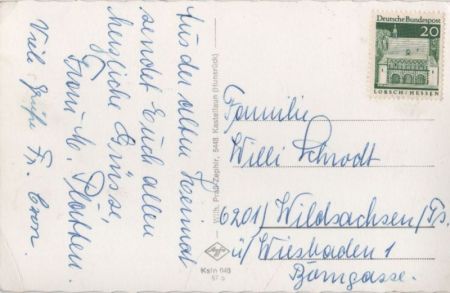 Aus der alten Heimat
sendet Euch allen
herzliche Grüsse,
Frau M. Platten.
Viele Grüße Fr. Cron.
Wilh. Praß-Zephir, 5448 Kastellaun (Hunsrück)
Agfa
Ksln 648
Deutsche Bundespost
20
LORSCH/HESSEN
Familie
Willi Schrodt
6201/Wildsachsen/Ts.
ü/Wiesbaden 1
Borngasse.